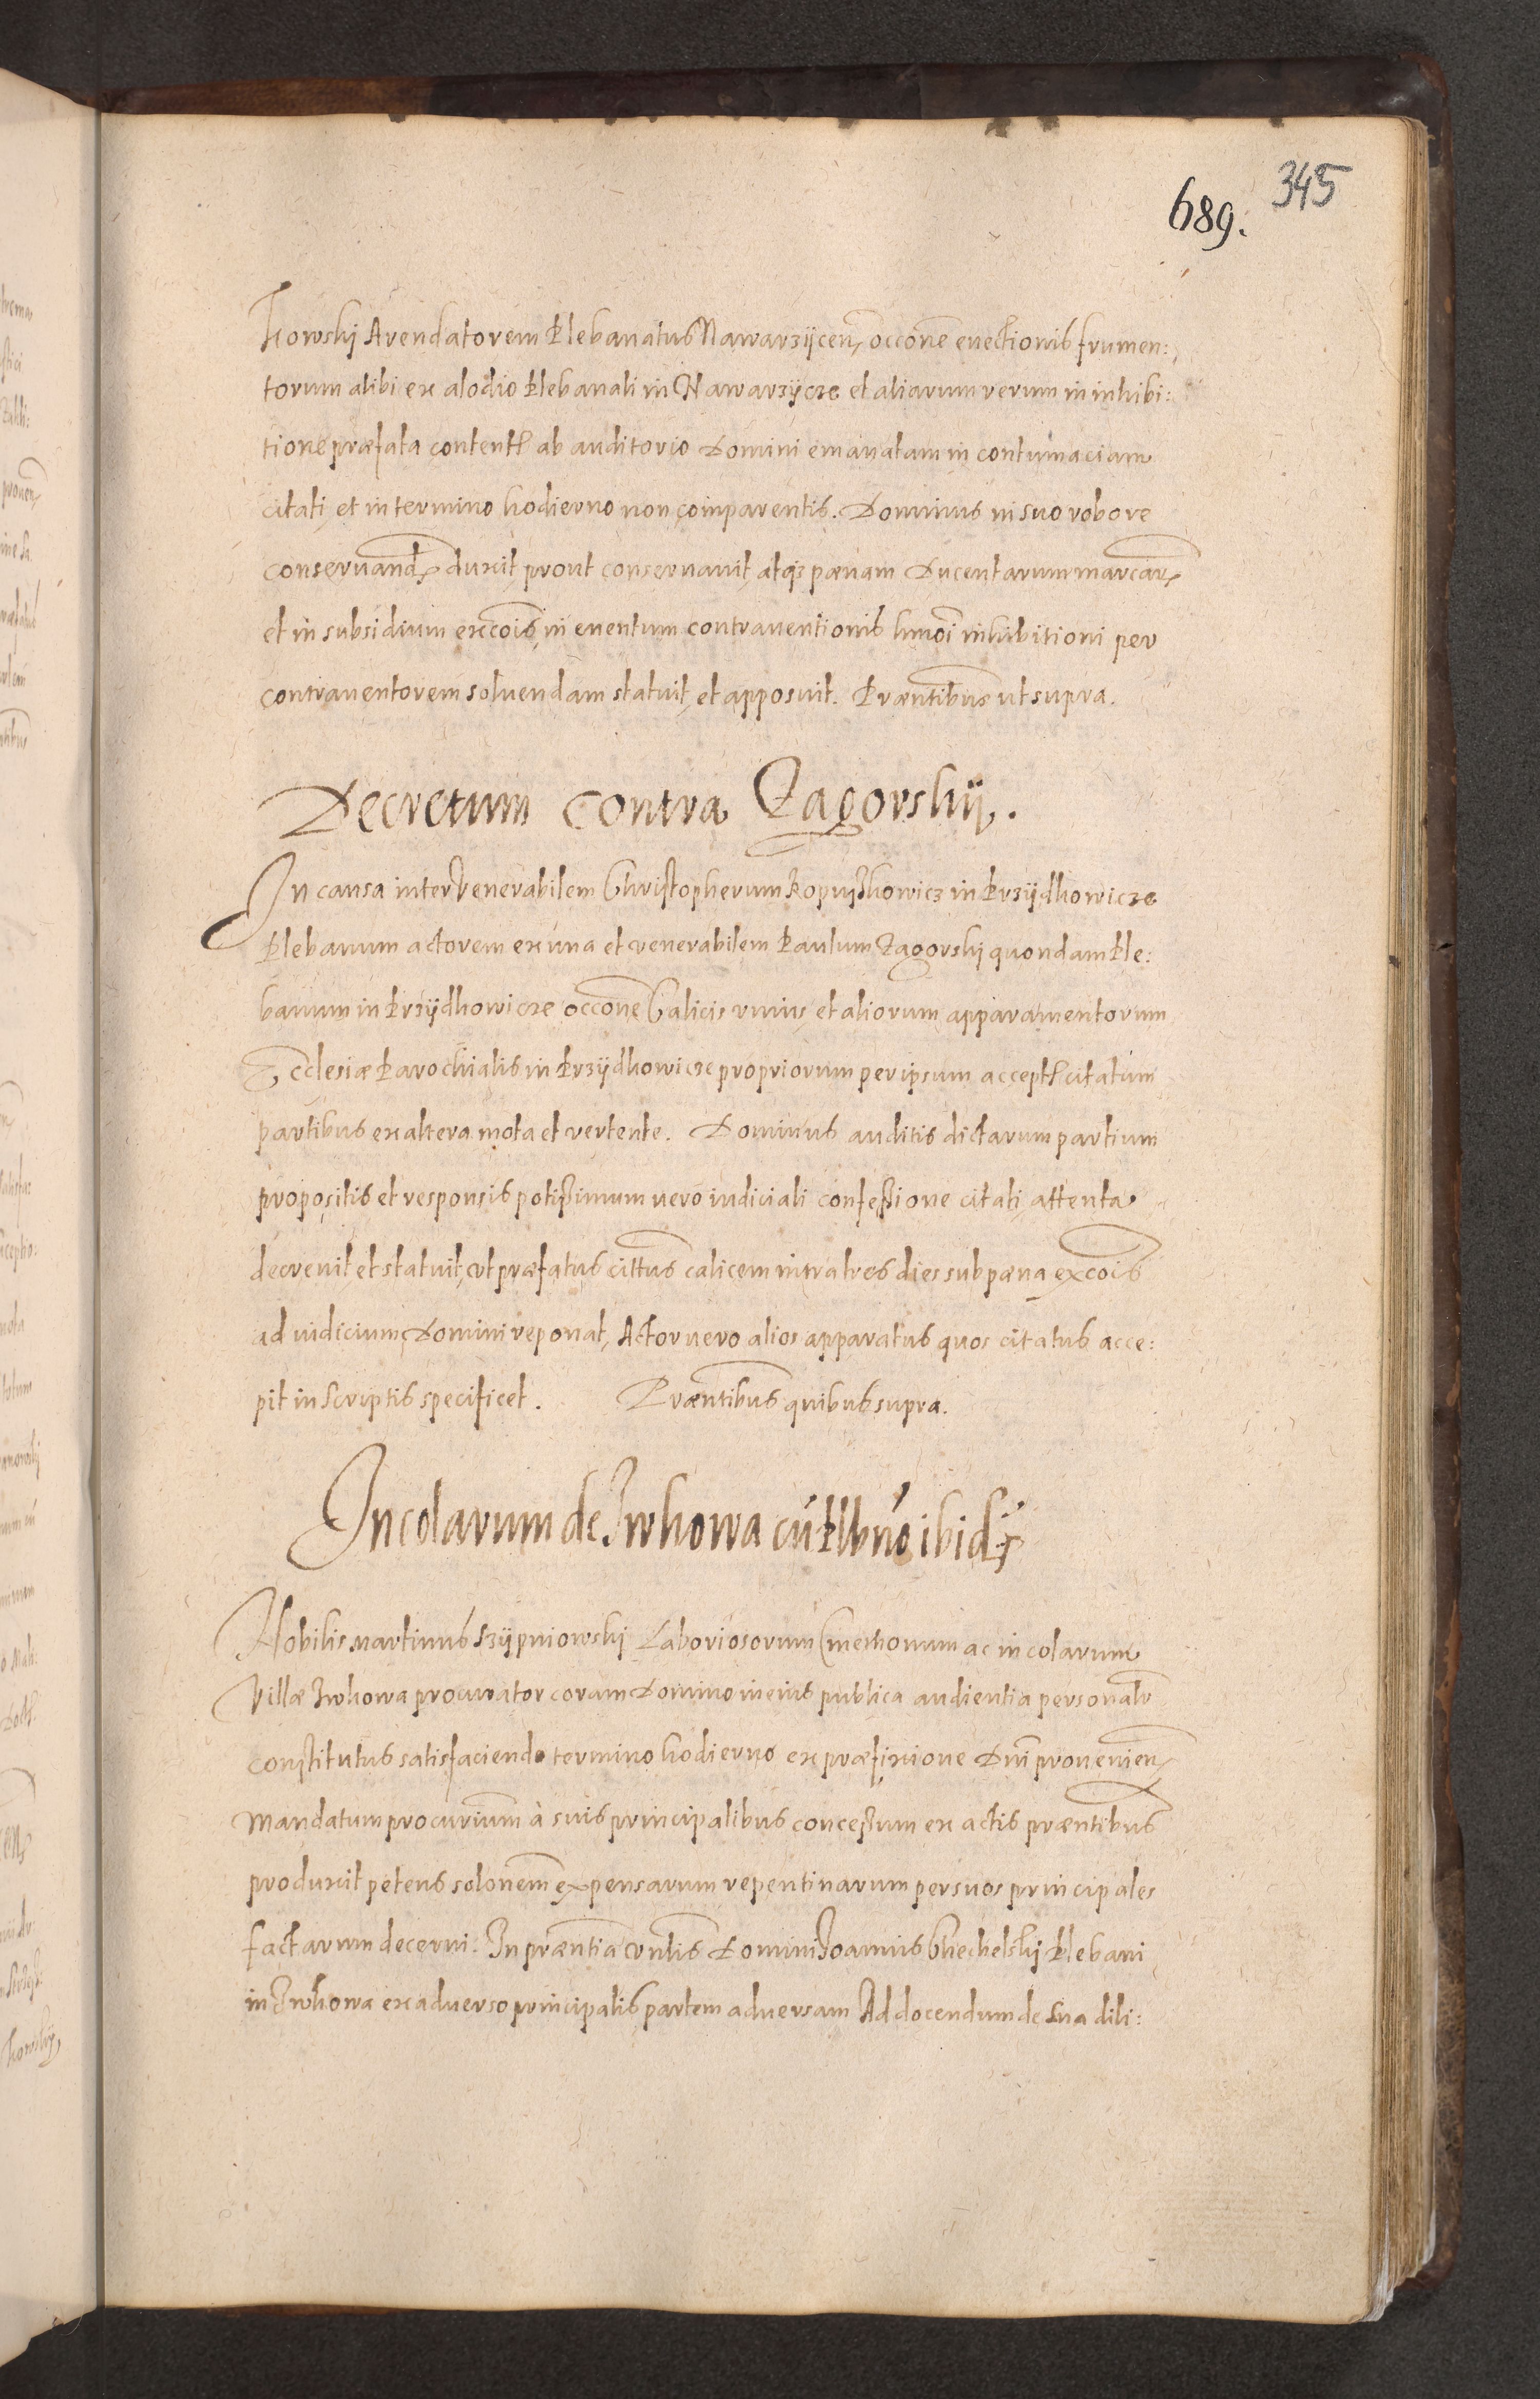 345
689.
kowskj Arendatorem Plebanatus Nawarzycen, occone euectionis frumen:
torum alibi ex alodio plebanali in Nawarzÿcze et aliarum rerum in inhibi:
tione præfata content ab auditorio Domini emanatam in contumaciam
citati, et in termino hodierno non comparentis. Dominus in suo robore
conseruand duxit, prout conseruauit, atqz pænam Ducentarum marcar
et in subsidium excois, in euentum contrauentionis hmoi inhibitioni per
contrauentorem soluendam statuit, et apposuit. Præntibus ut supra.
Decretum contra Zagorskÿ.
In causa inter Venerabilem Christopherum in Krzÿdkowicze
Plebanum actorem ex una et venerabilem Paulum Zagorskj quondam Ple:
banum in Krzÿdkowicze occone Calicis vnius, et aliorum apparamentorum
Ecclesiæ Parochialis in Krzÿdkowicze propriorum per ipsum accept citatum
partibus ex altera mota et vertente. Dominus auditis dictarum partium
propositis et responsis potißimum uero iudiciali confeßione citati, attenta
decreuit et statuit, vt præfatus cittus calicem intra tres dies sub pæna excois
ad iudicium Domini reponat, Actor uero alios apparatus quos citatus acce:
pit in Scriptis specificet. Præntibus quibus supra.
Incolarum de Iwkowa cū Plbno ibid
Nobilis Martinus Szÿpniowskj Laboriosorum Cmethonum ac incolarum
Villæ Iwkowa procurator coram Domino in eius publica audientia personalr
constitutus satisfaciendo termino hodierno ex præfixione Dni prouenien,
Mandatum procurium à suis principalibus conceßum ex actis præntibus
produxit petens solonem expensarum repentinarum per suos principales
factarum decerni. In præntia vnlis Domini Joannis Chechelskj Plebani
in Iwkowa ex aduerso principalis partem aduersam Ad docendum de Sua dili: